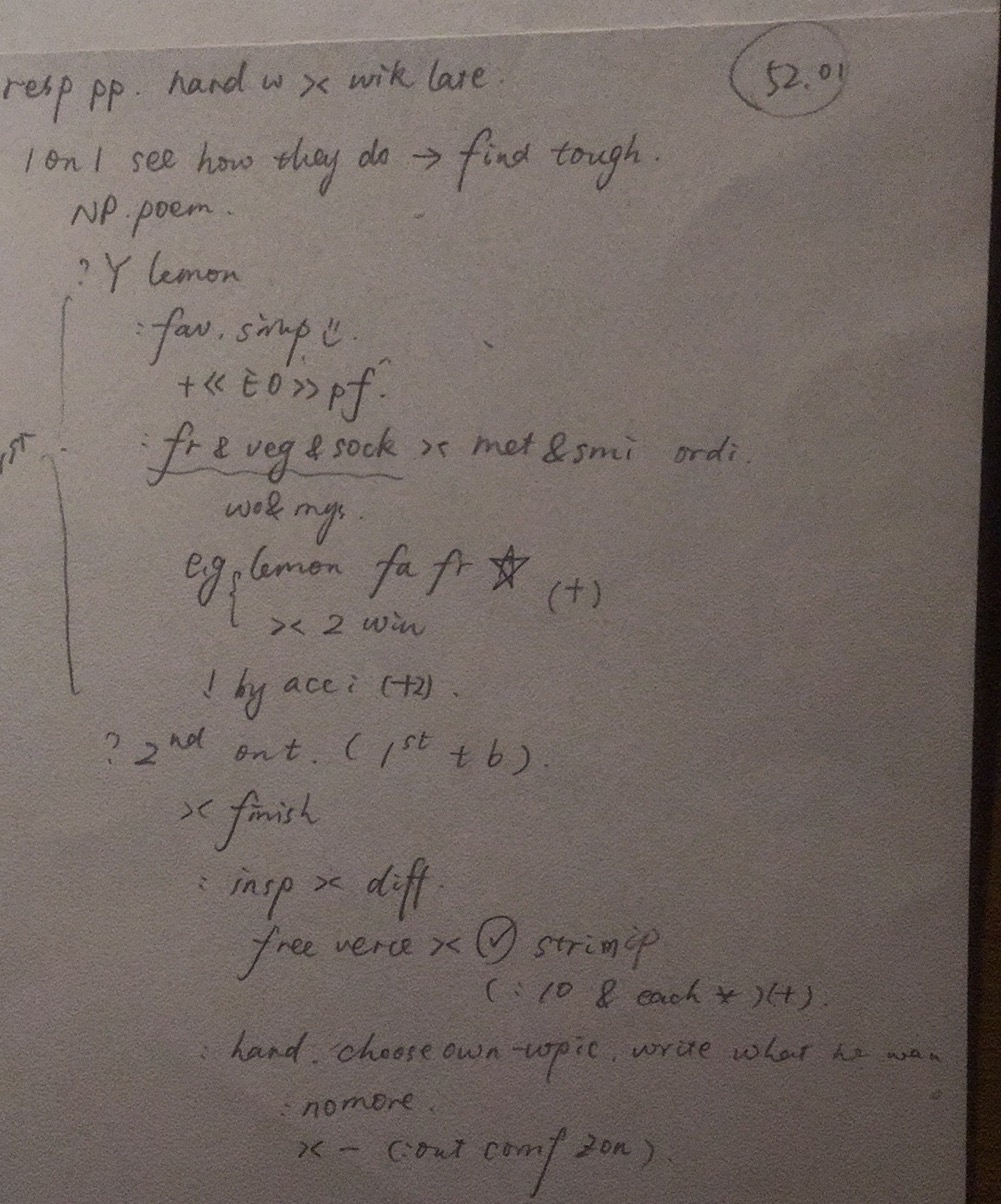 resp pp. hand w >< wik late. 52.01
1 on 1 see how they do → find tough.
NP. poem.
? Y lemon
: fav. simp ü.
+ << EO >> pf.
: fr & veg & sock >< met & smi ordi.
wo & mys.
e.g { lemon fa fr ☆ (+)
>< 2 win
! by acci (+2).
? 2nd ont. (1st + b).
>< finish
: insp >< diff.
free verce >< ✓
(: 10 & each * )(+).
: hand. choose own topic. write what he wan
: no more.
>< – (: out comf zon).